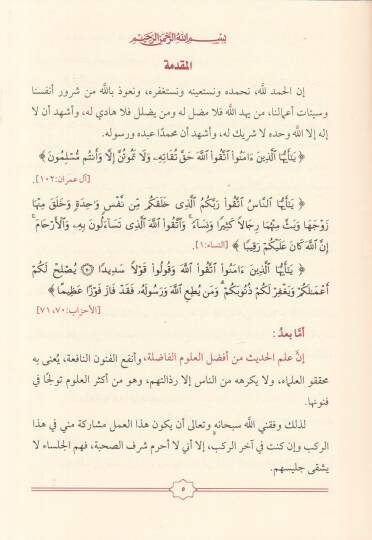 بسم الله الرحمن الرحيم
المقدمة
إن الحمد لله، نحمده ونستعينه ونستغفره، ونعوذ بالله من شرور أنفسنا
وسيئات أعمالنا، من يهد الله فلا مضل له ومن يضلل فلا هادي له، وأشهد أن لا
إله إلا الله وحده لا شريك له، وأشهد أن محمدًا عبده ورسوله.
﴿ يَـٰٓأَيُّهَا ٱلَّذِينَ ءَامَنُوا۟ ٱتَّقُوا۟ ٱللَّهَ حَقَّ تُقَاتِهِۦ وَلَا تَمُوتُنَّ إِلَّا وَأَنتُم مُّسْلِمُونَ ﴾
[آل عمران:١٠٢].
﴿ يَـٰٓأَيُّهَا ٱلنَّاسُ ٱتَّقُوا۟ رَبَّكُمُ ٱلَّذِى خَلَقَكُم مِّن نَّفْسٍ وَٰحِدَةٍ وَخَلَقَ مِنْهَا
زَوْجَهَا وَبَثَّ مِنْهُمَا رِجَالًا كَثِيرًا وَنِسَآءً ۚ وَٱتَّقُوا۟ ٱللَّهَ ٱلَّذِى تَسَآءَلُونَ بِهِۦ وَٱلْأَرْحَامَ ۚ
إِنَّ ٱللَّهَ كَانَ عَلَيْكُمْ رَقِيبًا ﴾ [النساء:١].
﴿ يَـٰٓأَيُّهَا ٱلَّذِينَ ءَامَنُوا۟ ٱتَّقُوا۟ ٱللَّهَ وَقُولُوا۟ قَوْلًا سَدِيدًا ۝٧٠ يُصْلِحْ لَكُمْ
أَعْمَـٰلَكُمْ وَيَغْفِرْ لَكُمْ ذُنُوبَكُمْ ۗ وَمَن يُطِعِ ٱللَّهَ وَرَسُولَهُۥ فَقَدْ فَازَ فَوْزًا عَظِيمًا ﴾
[الأحزاب:٧٠، ٧١]
أمّا بعدُ:
إنَّ علم الحديث من أفضل العلوم الفاضلة، وأنفع الفنون النافعة، يُعنى به
محققو العلماء، ولا يكرهه من الناس إلا رذالتهم، وهو من أكثر العلوم تولجًا في
فنونها.
لذلك وفقني الله سبحانه وتعالى أن يكون هذا العمل مشاركة مني في هذا
الركب وإن كنت في آخر الركب، إلا أني لا أحرم شرف الصحبة، فهم الجلساء لا
يشقى جليسهم.
٥